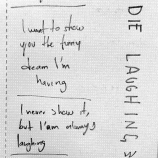 I want to show
you the funny
dream I'm
having
I never show it,
but I am always
laughing
DIE LAUGHING